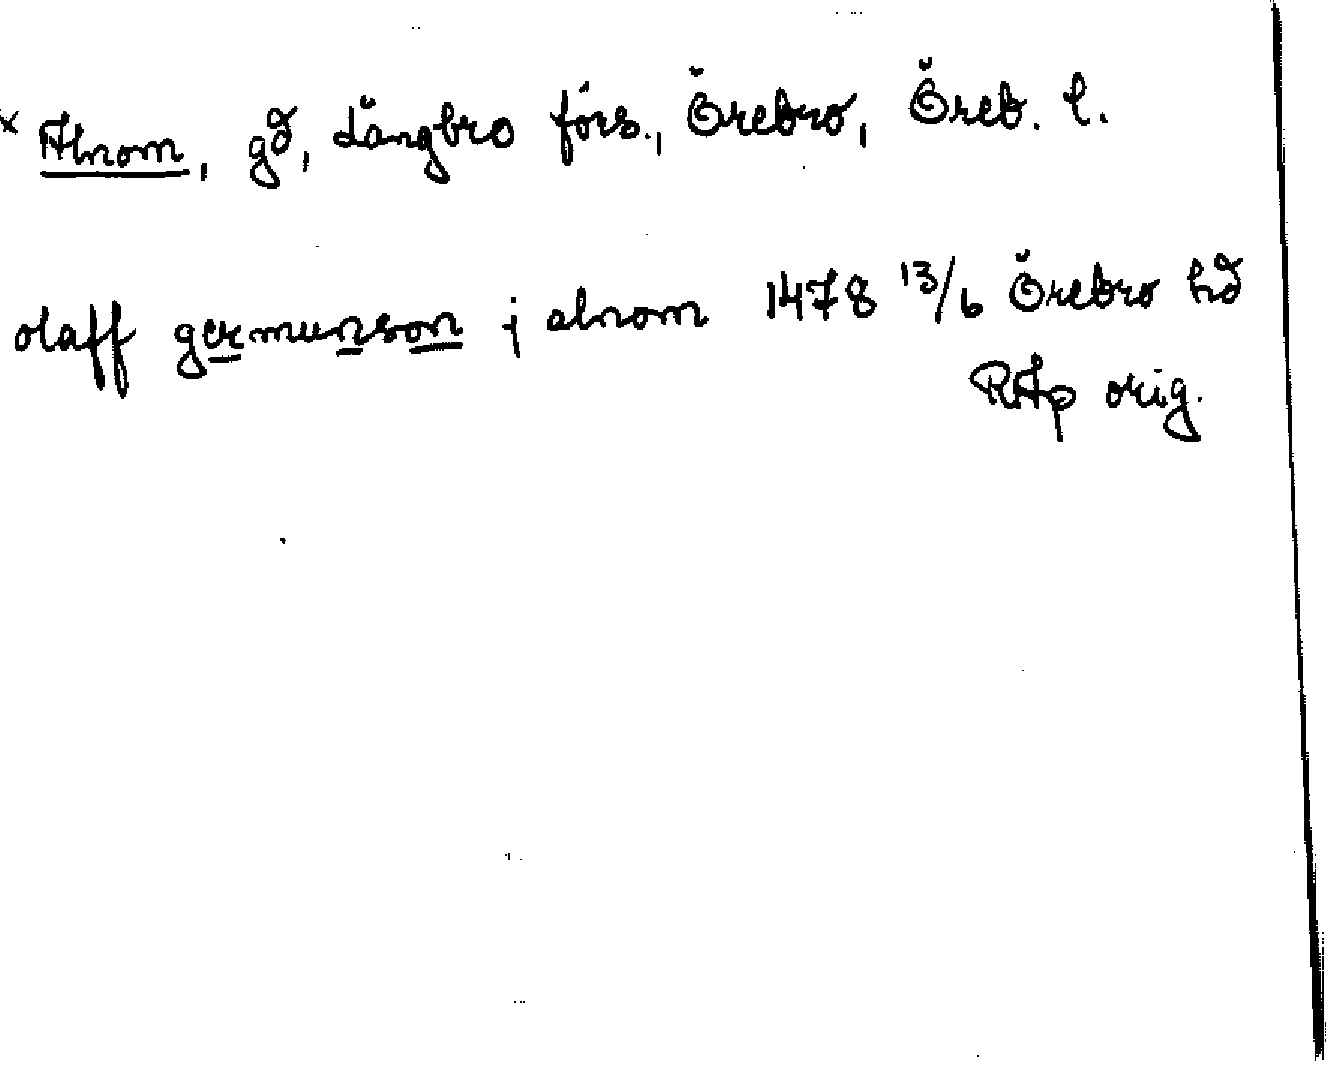 × Alnom, gd, Längbro förs., Örebro, Öreb. l.
olaff germunson j alnom 1478 13/6 Örebro hd
RAp orig.